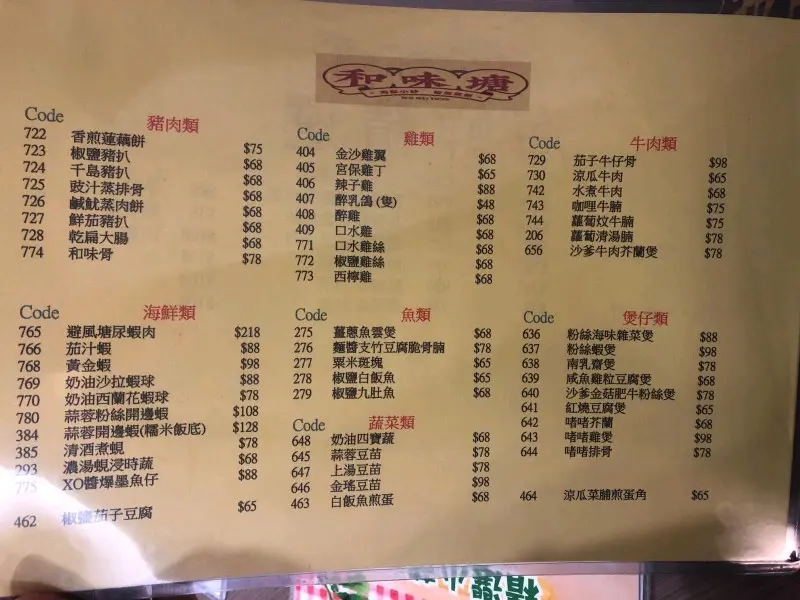 和味塘
Code 豬肉類
722 香煎蓮藕餅 $75
723 椒鹽豬扒 $68
724 千島豬扒 $68
725 豉汁蒸排骨 $68
726 鹹魷蒸肉餅 $68
727 鮮茄豬扒 $68
728 乾扁大腸 $68
774 和味骨 $78
Code 雞類
404 金沙雞翼 $68
405 宮保雞丁 $65
406 辣子雞 $88
407 醉乳鴿 (隻) $48
408 醉雞 $68
409 口水雞 $68
771 口水雞絲 $68
772 椒鹽雞絲 $68
773 西檸雞 $68
Code 牛肉類
729 茄子牛仔骨 $98
730 涼瓜牛肉 $65
742 水煮牛肉 $68
743 咖哩牛腩 $75
744 蘿蔔炆牛腩 $75
206 蘿蔔清湯腩 $78
656 沙爹牛肉芥蘭煲 $78
Code 海鮮類
765 避風塘尿蝦肉 $218
766 茄汁蝦 $88
768 黃金蝦 $98
769 奶油沙拉蝦球 $88
770 奶油西蘭花蝦球 $78
780 蒜蓉粉絲開邊蝦 $108
384 蒜蓉開邊蝦(糯米飯底) $128
385 清酒煮蜆 $78
293 濃湯蜆浸時蔬 $68
775 XO醬爆墨魚仔 $88
462 椒鹽茄子豆腐 $65
Code 魚類
275 薑蔥魚雲煲 $68
276 麵醬支竹豆腐脆骨腩 $78
277 粟米斑塊 $65
278 椒鹽白飯魚 $65
279 椒鹽九肚魚 $68
Code 蔬菜類
648 奶油四寶蔬 $68
645 蒜蓉豆苗 $78
647 上湯豆苗 $78
646 金瑤豆苗 $98
463 白飯魚煎蛋 $68
Code 煲仔類
636 粉絲海味雜菜煲 $88
637 粉絲蝦煲 $98
638 南乳齋煲 $78
639 咸魚雞粒豆腐煲 $68
640 沙爹金菇肥牛粉絲煲 $78
641 紅燒豆腐煲 $65
642 啫啫芥蘭 $68
643 啫啫雞煲 $98
644 啫啫排骨 $78
464 涼瓜菜脯煎蛋角 $65